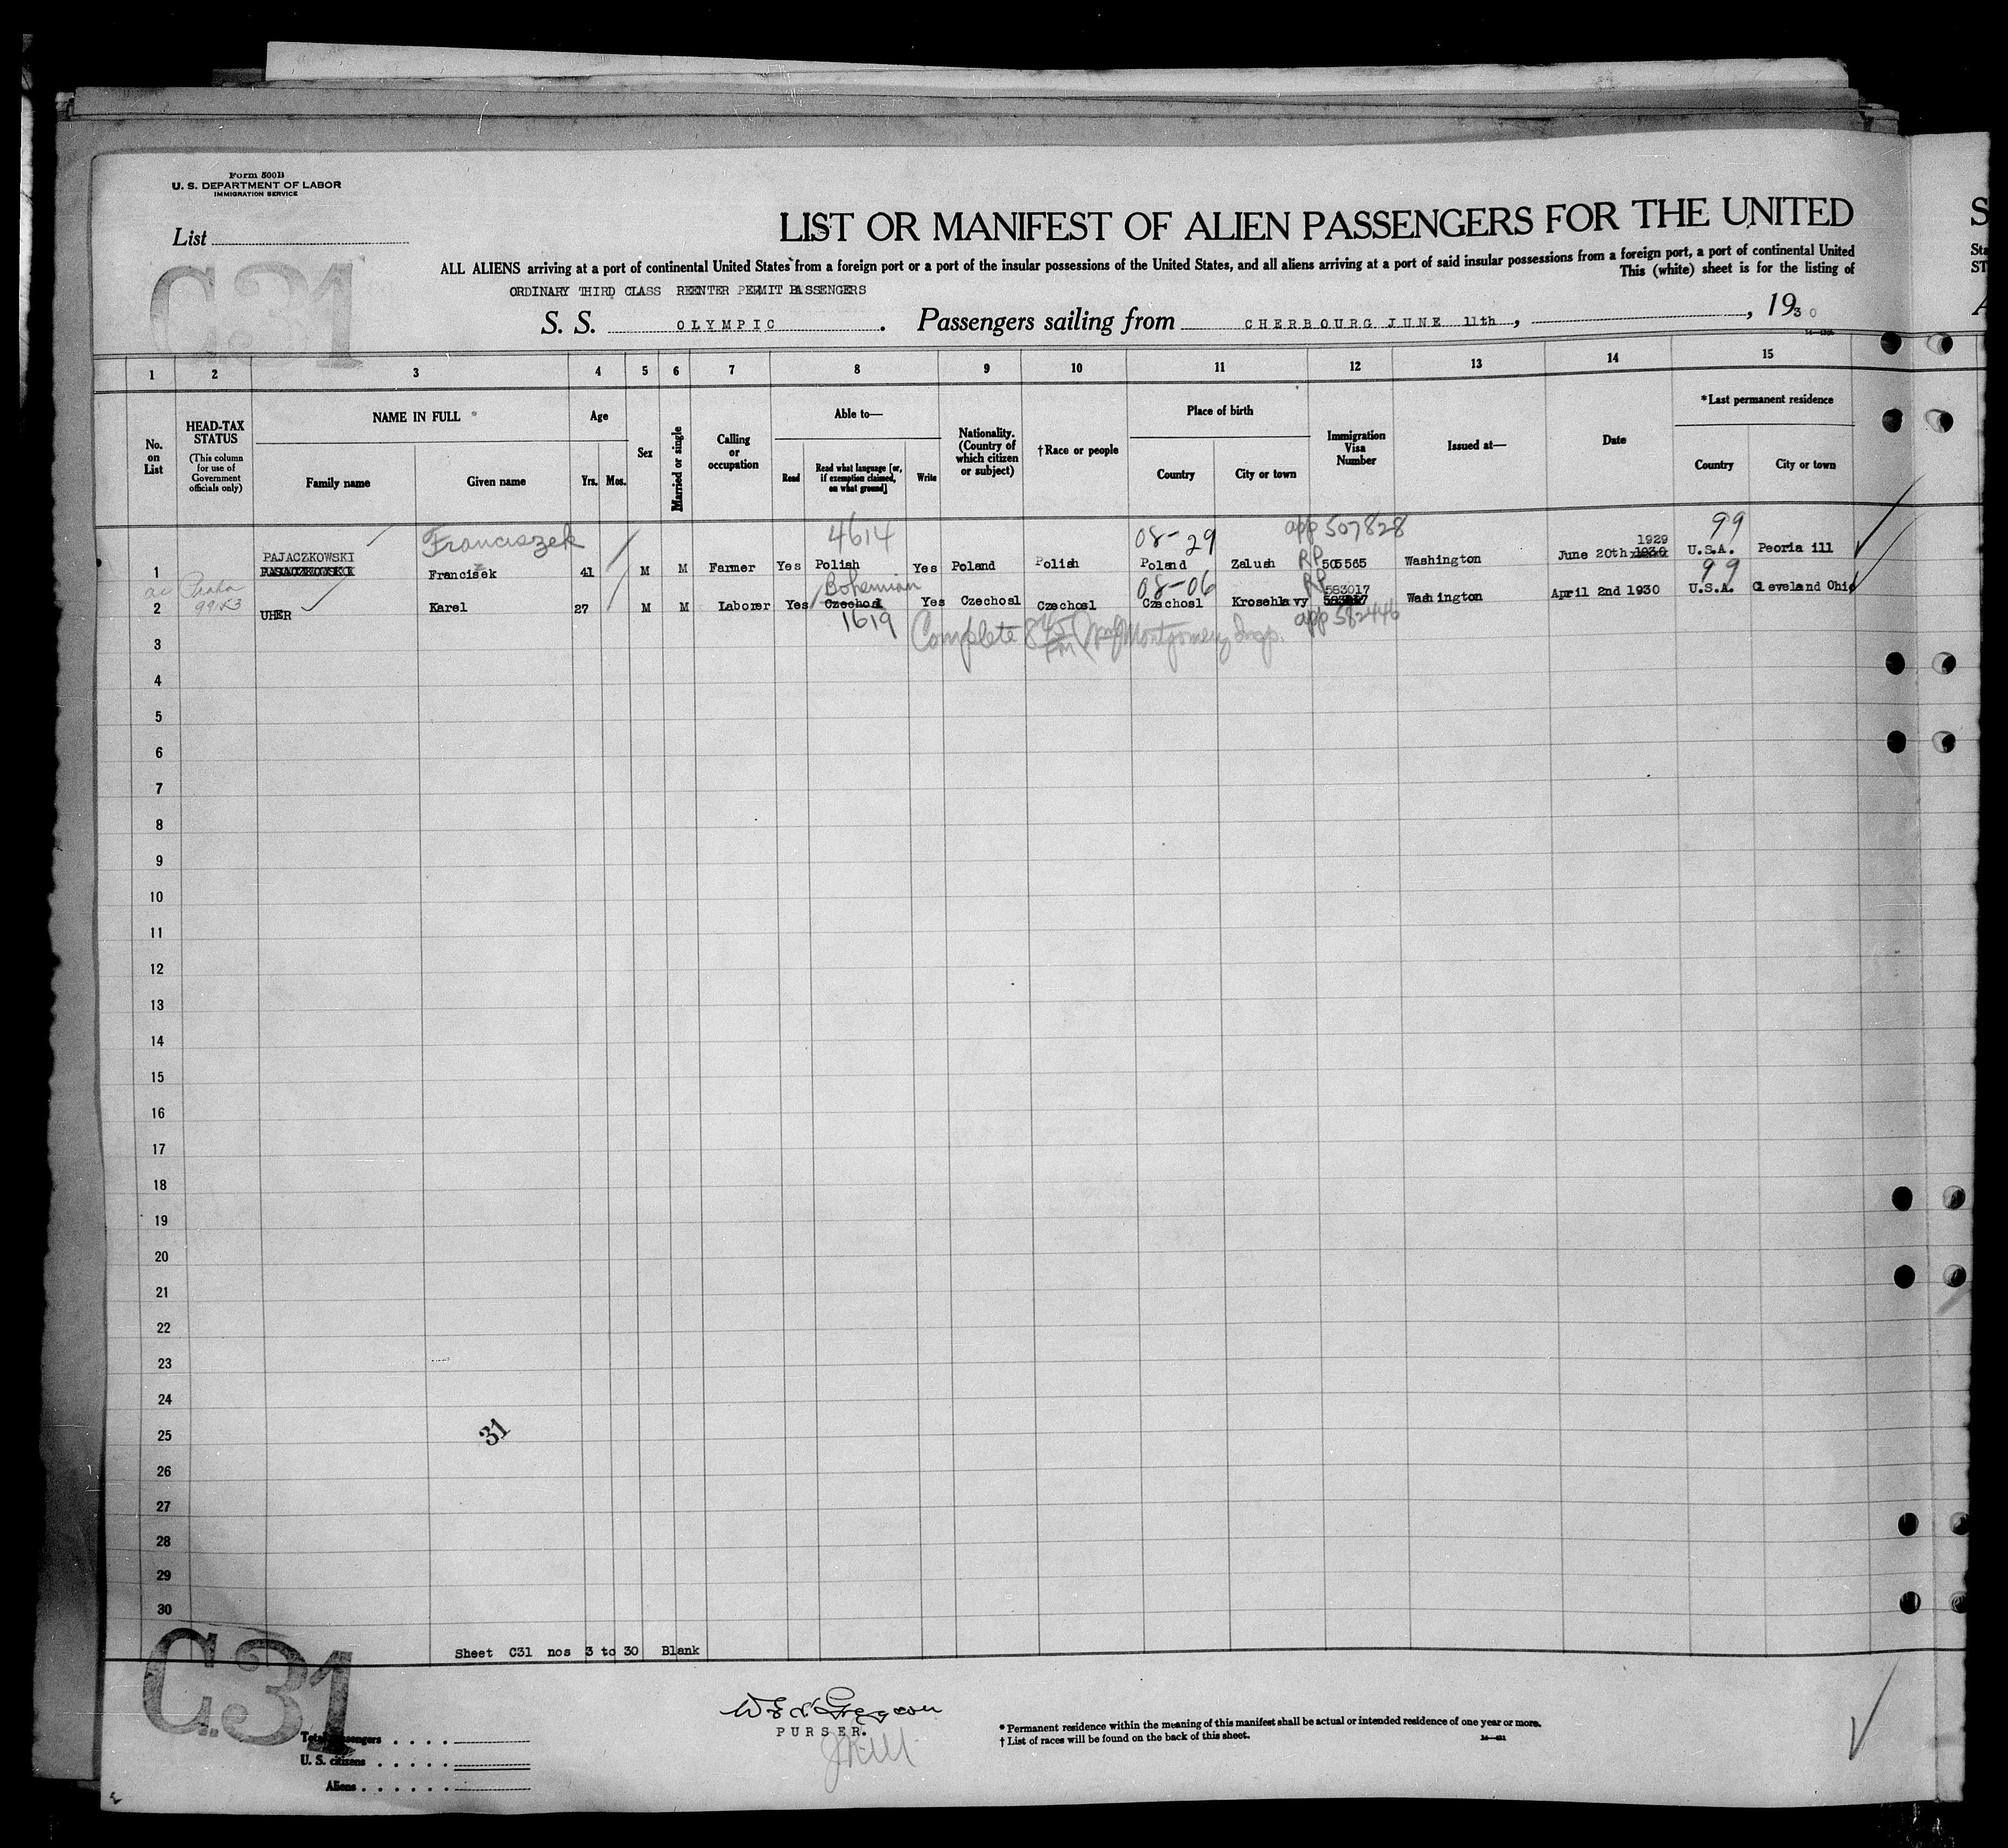 Form 500B
U. S. DEPARTMENT OF LABOR
IMMIGRATION SERVICE
List
C.31
LIST OR MANIFEST OF ALIEN PASSENGERS FOR THE UNITED
S
ALL ALIENS arriving at a port of continental United States from a foreign port or a port of the insular possessions of the United States, and all aliens arriving at a port of said insular possessions from a foreign port, a port of continental United
Sta
This (white) sheet is for the listing of
ST
ORDINARY THIRD CLASS REENTER PERMIT PASSENGERS
S. S. OLYMPIC . Passengers sailing from CHERBOURG JUNE 11th, , 1930
A
1 2 3 4 5 6 7 8 9 10 11 12 13 14 15
No. on List
HEAD-TAX STATUS
(This column for use of Government officials only)
NAME IN FULL
Family name
Given name
Age
Yrs. Mos.
Sex
Married or single
Calling or occupation
Able to—
Read
Read what language [or, if exemption claimed, on what ground]
Write
Nationality. (Country of which citizen or subject)
†Race or people
Place of birth
Country
City or town
Immigration Visa Number
Issued at—
Date
*Last permanent residence
Country
City or town
Franciszek 4614 08-29 app 507828 99
PAJACZKOWSKI 1929
1 PAJACZKOWSKI Francisek 41 M M Farmer Yes Polish Yes Poland Polish Poland Zalush RP 505565 Washington June 20th 1930 U.S.A. Peoria ill
Praha Bohemian 08-06 RP 99
99153 583017
2 UHER Karel 27 M M Laborer Yes Czechosl Yes Czechosl Czechosl Czechosl Krosehlavy Washington April 2nd 1930 U.S.A. Cleveland Ohio
1619 app 582446
3 Complete 845 Montgomery Insp.
4
5
6
7
8
9
10
11
12
13
14
15
16
17
18
19
20
21
22
23
24
25
31
26
27
28
29
30
Sheet C31 nos 3 to 30 Blank
C.31
PURSER.
Total passengers
U. S. citizens
Aliens
* Permanent residence within the meaning of this manifest shall be actual or intended residence of one year or more.
† List of races will be found on the back of this sheet.